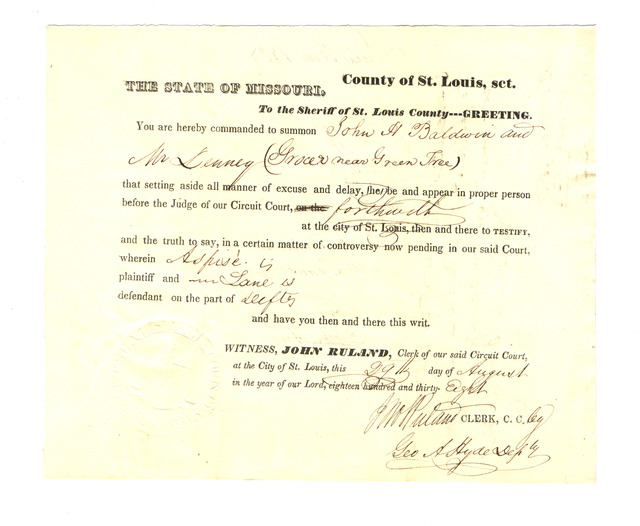 THE STATE OF MISSOURI, County of St. Louis, sct.
To the Sheriff of St. Louis County---GREETING.
You are hereby commanded to summon John H Baldwin and
Mr Denney (Grocer near Green Tree)
that setting aside all manner of excuse and delay, (he) be and appear in proper person
before the Judge of our Circuit Court, on the forthwith
at the city of St. Louis, then and there to TESTIFY,
and the truth to say, in a certain matter of controversy now pending in our said Court,
wherein Aspisé is
plaintiff and Lane is
defendant on the part of Defts
and have you then and there this writ.
WITNESS, JOHN RULAND, Clerk of our said Circuit Court,
at the City of St. Louis, this 29th day of August
in the year of our Lord, eighteen hundred and thirty-Eight
Jno Ruland CLERK, C. C. by
Geo A Hyde Depty